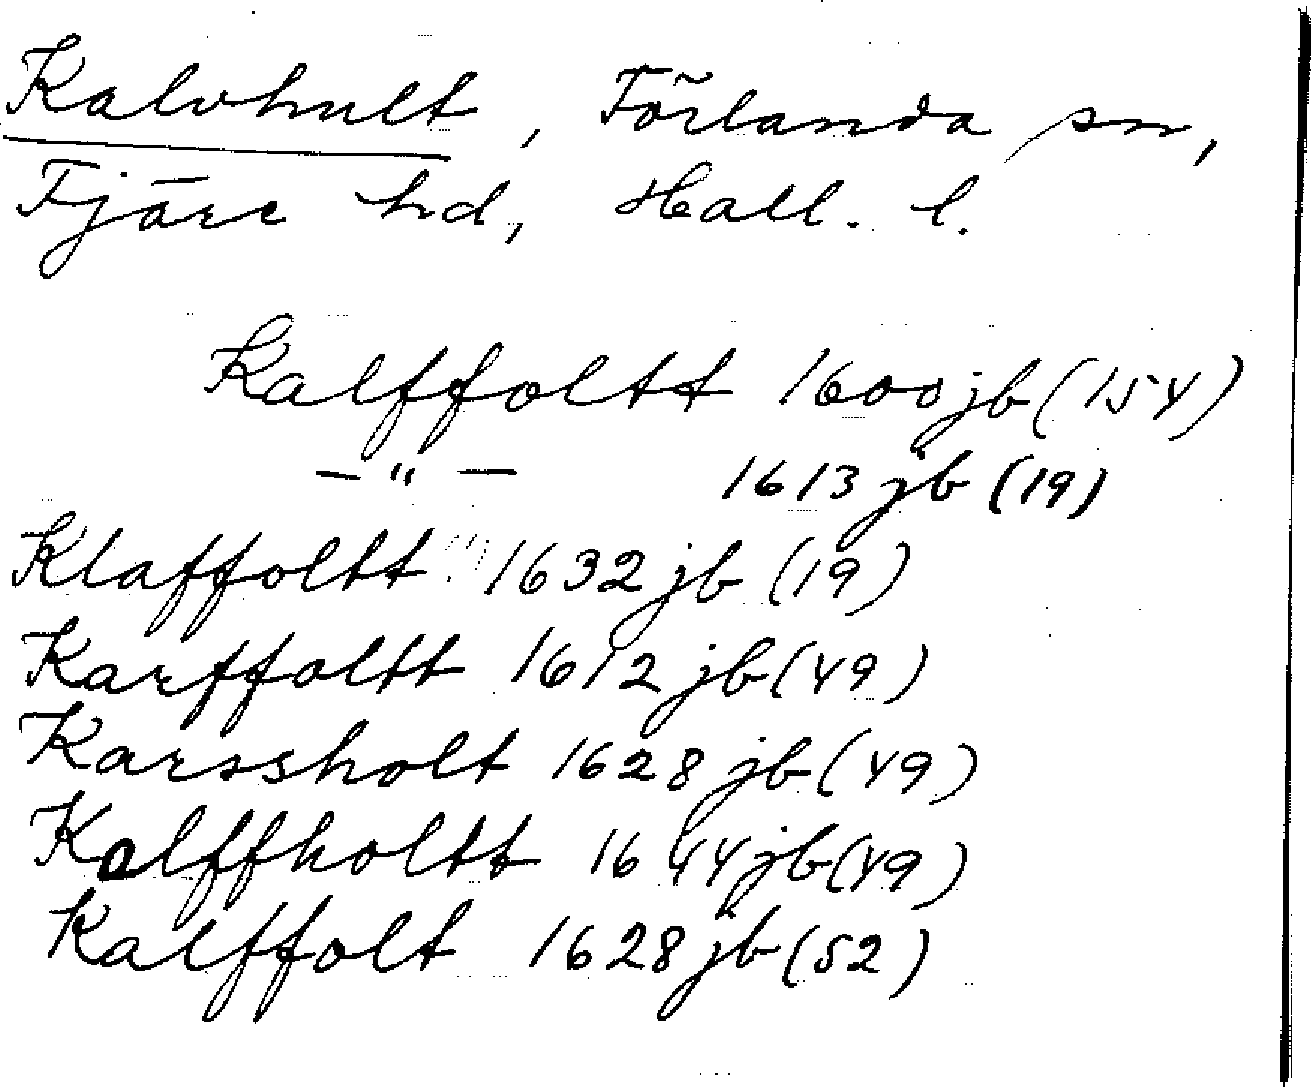 Kalvhult, Förlanda sn,
Fjäre hd, Hall. l.
Kalffoltt 1600 jb (154)
— " — 1613 jb (19)
Klaffoltt 1632 jb (19)
Karffoltt 1612 jb (49)
Karssholt 1628 jb (49)
Kalffholtt 1644 jb (49)
Kalffolt 1628 jb (52)